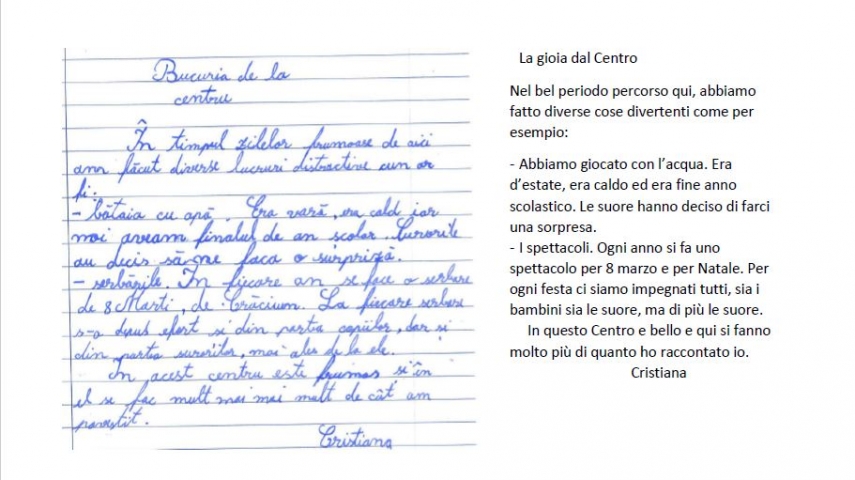 Bucuria de la
centru
În timpul zilelor frumoase de aici
am făcut diverse lucruri distractive cum ar
fi.
- bătaia cu apă. Era vară, era cald iar
noi aveam finalul de an școlar. Surorile
au decis să ne faca o surpriză.
- serbările. In fiecare an se face o serbare
de 8 Marti, de Crăciun. La fiecare serbare
s-a depus efort si din partea copiilor, dar si
din partea surorilor, mai ales de la ele.
In acest centru este frumos si în
el se fac mult mai mai mult de cât am
povestit.
Cristiana
La gioia dal Centro
Nel bel periodo percorso qui, abbiamo
fatto diverse cose divertenti come per
esempio:
- Abbiamo giocato con l’acqua. Era
d’estate, era caldo ed era fine anno
scolastico. Le suore hanno deciso di farci
una sorpresa.
- I spettacoli. Ogni anno si fa uno
spettacolo per 8 marzo e per Natale. Per
ogni festa ci siamo impegnati tutti, sia i
bambini sia le suore, ma di più le suore.
In questo Centro e bello e qui si fanno
molto più di quanto ho raccontato io.
Cristiana